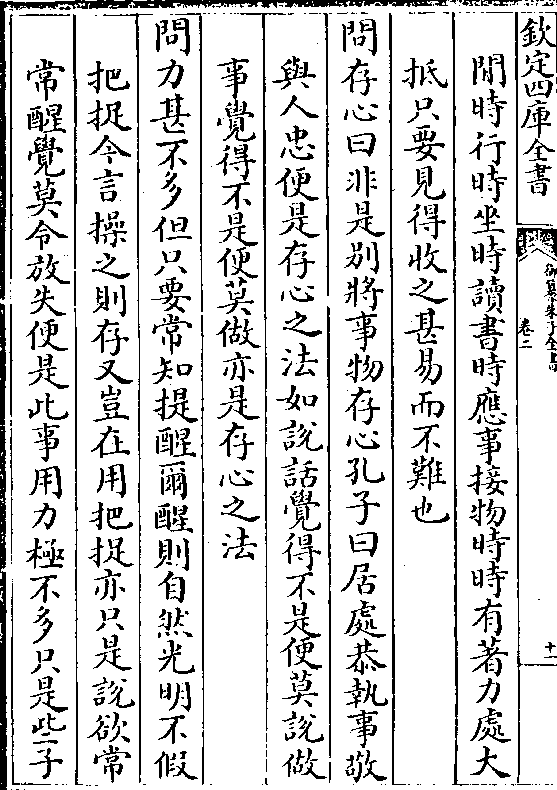 欽定四庫全書
御纂朱子全書
卷二
十一
閒時行時坐時讀書時應事接物時時有著力處大
抵只要見得收之甚易而不難也
問存心曰非是別將事物存心孔子曰居處恭執事敬
與人忠便是存心之法如說話覺得不是便莫說做
事覺得不是便莫做亦是存心之法
問力甚不多但只要常知提醒爾醒則自然光明不假
把捉今言操之則存又豈在用把捉亦只是說欲常
常醒覺莫令放失便是此事用力極不多只是些子